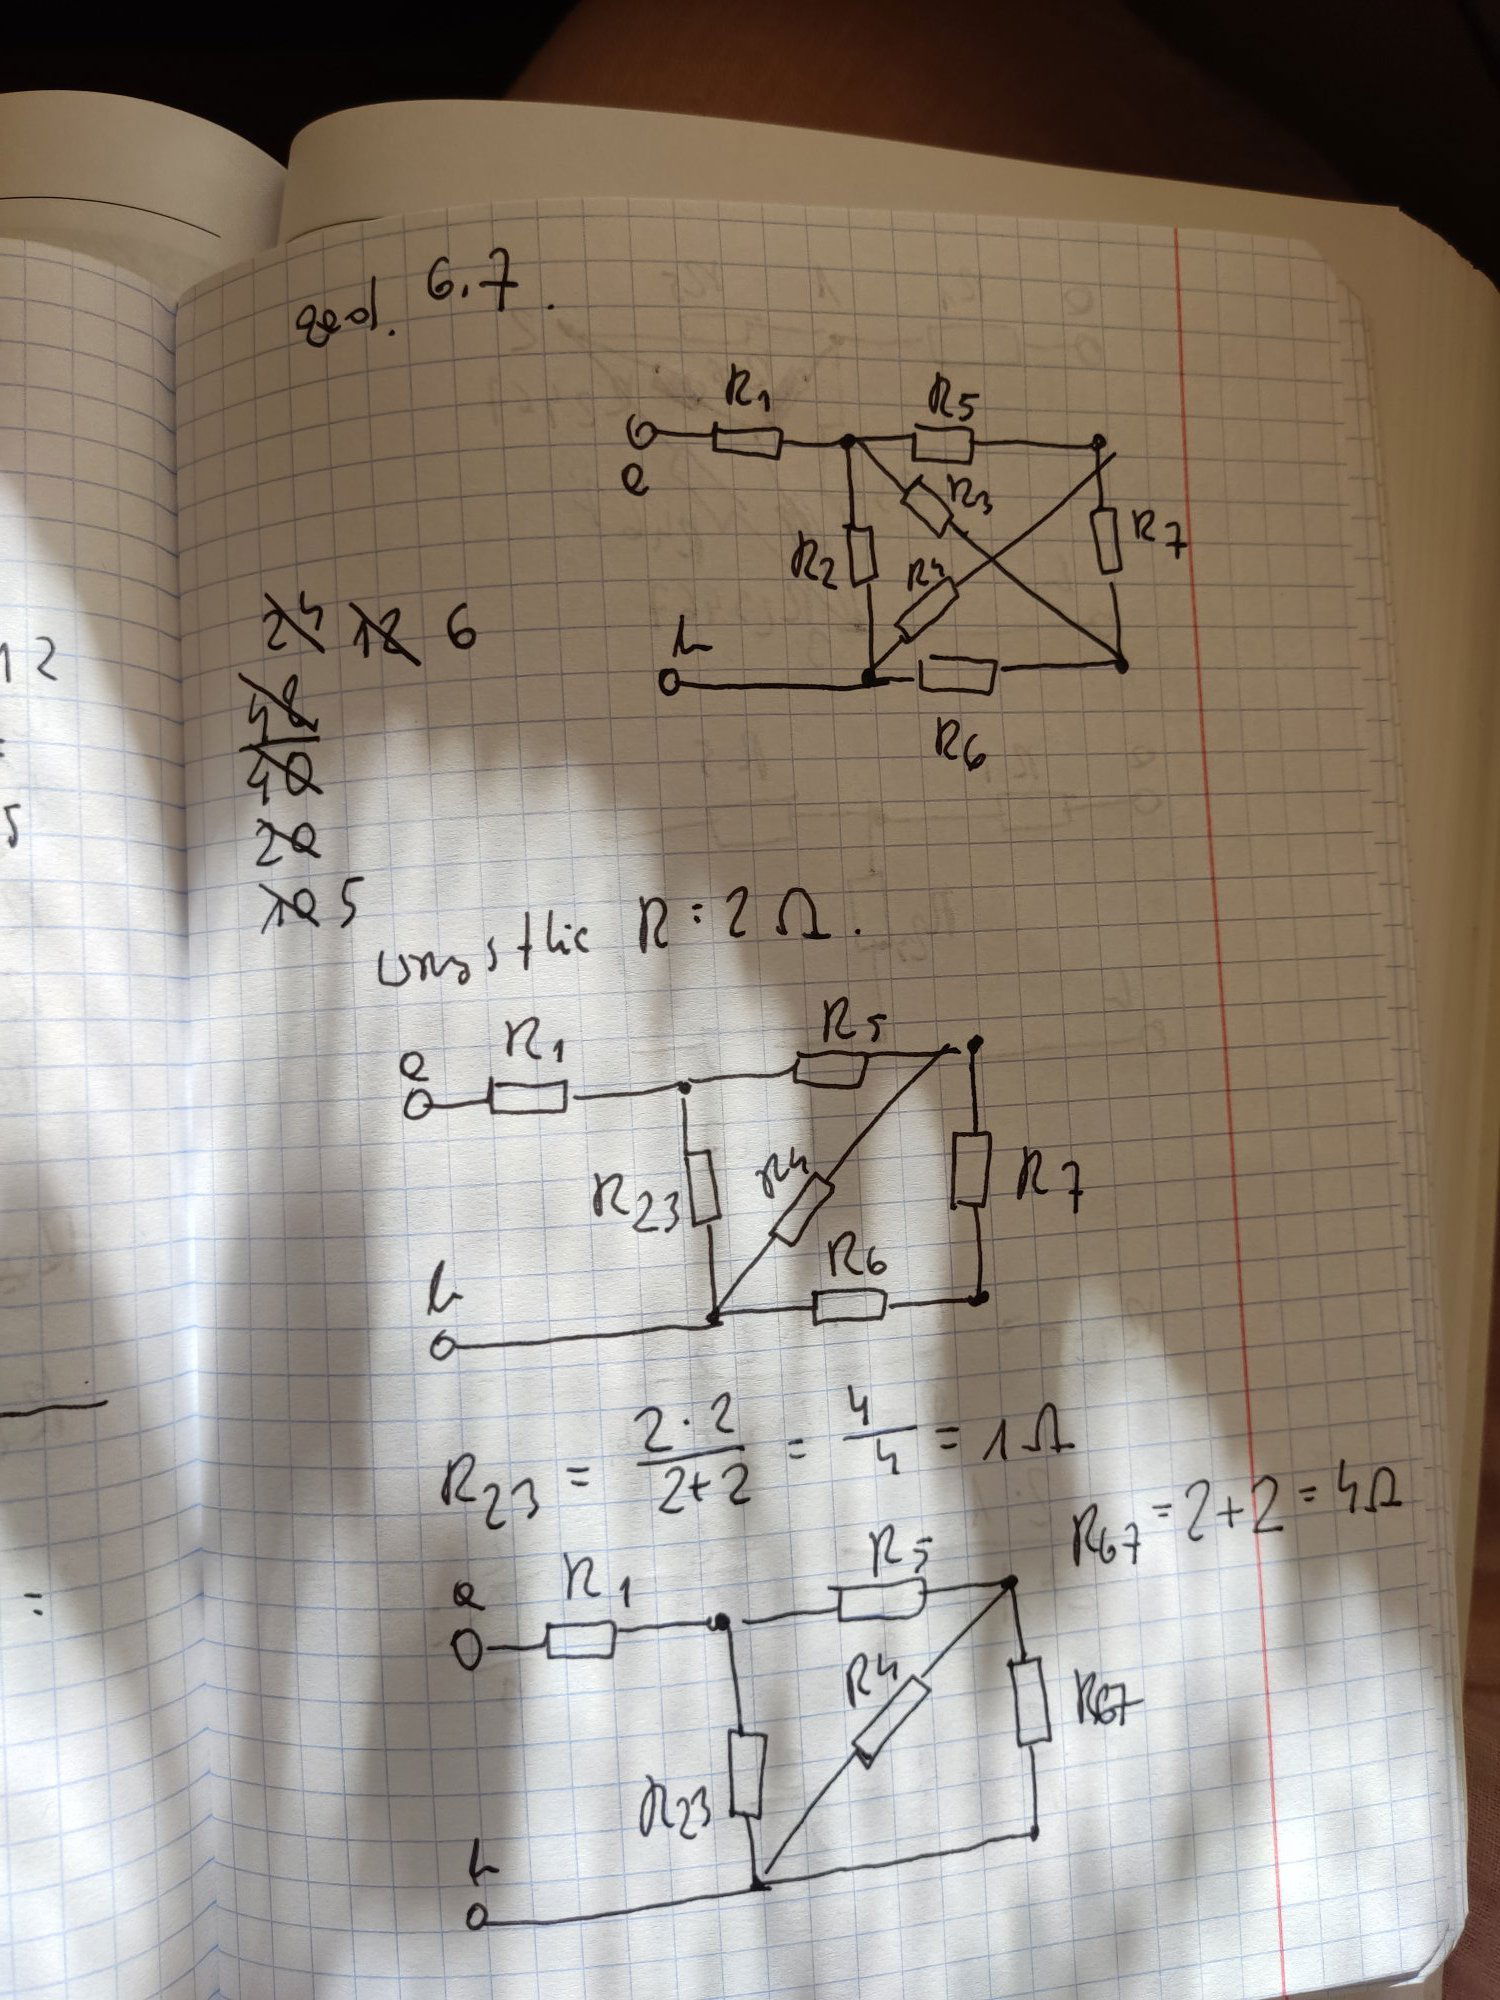 zad. 6.7.
R1 R5
a
R3
R2 R4 R7
b
R6
12 24 12 6
=
48
5 40
20
10 5
wszystkie R = 2 Ω.
R1 R5
a
R23 R4 R7
R6
b
R23 = 2·2/2+2 = 4/4 = 1Ω
R67 = 2+2 = 4Ω
R1 R5
a
=
R4 R67
R23
b